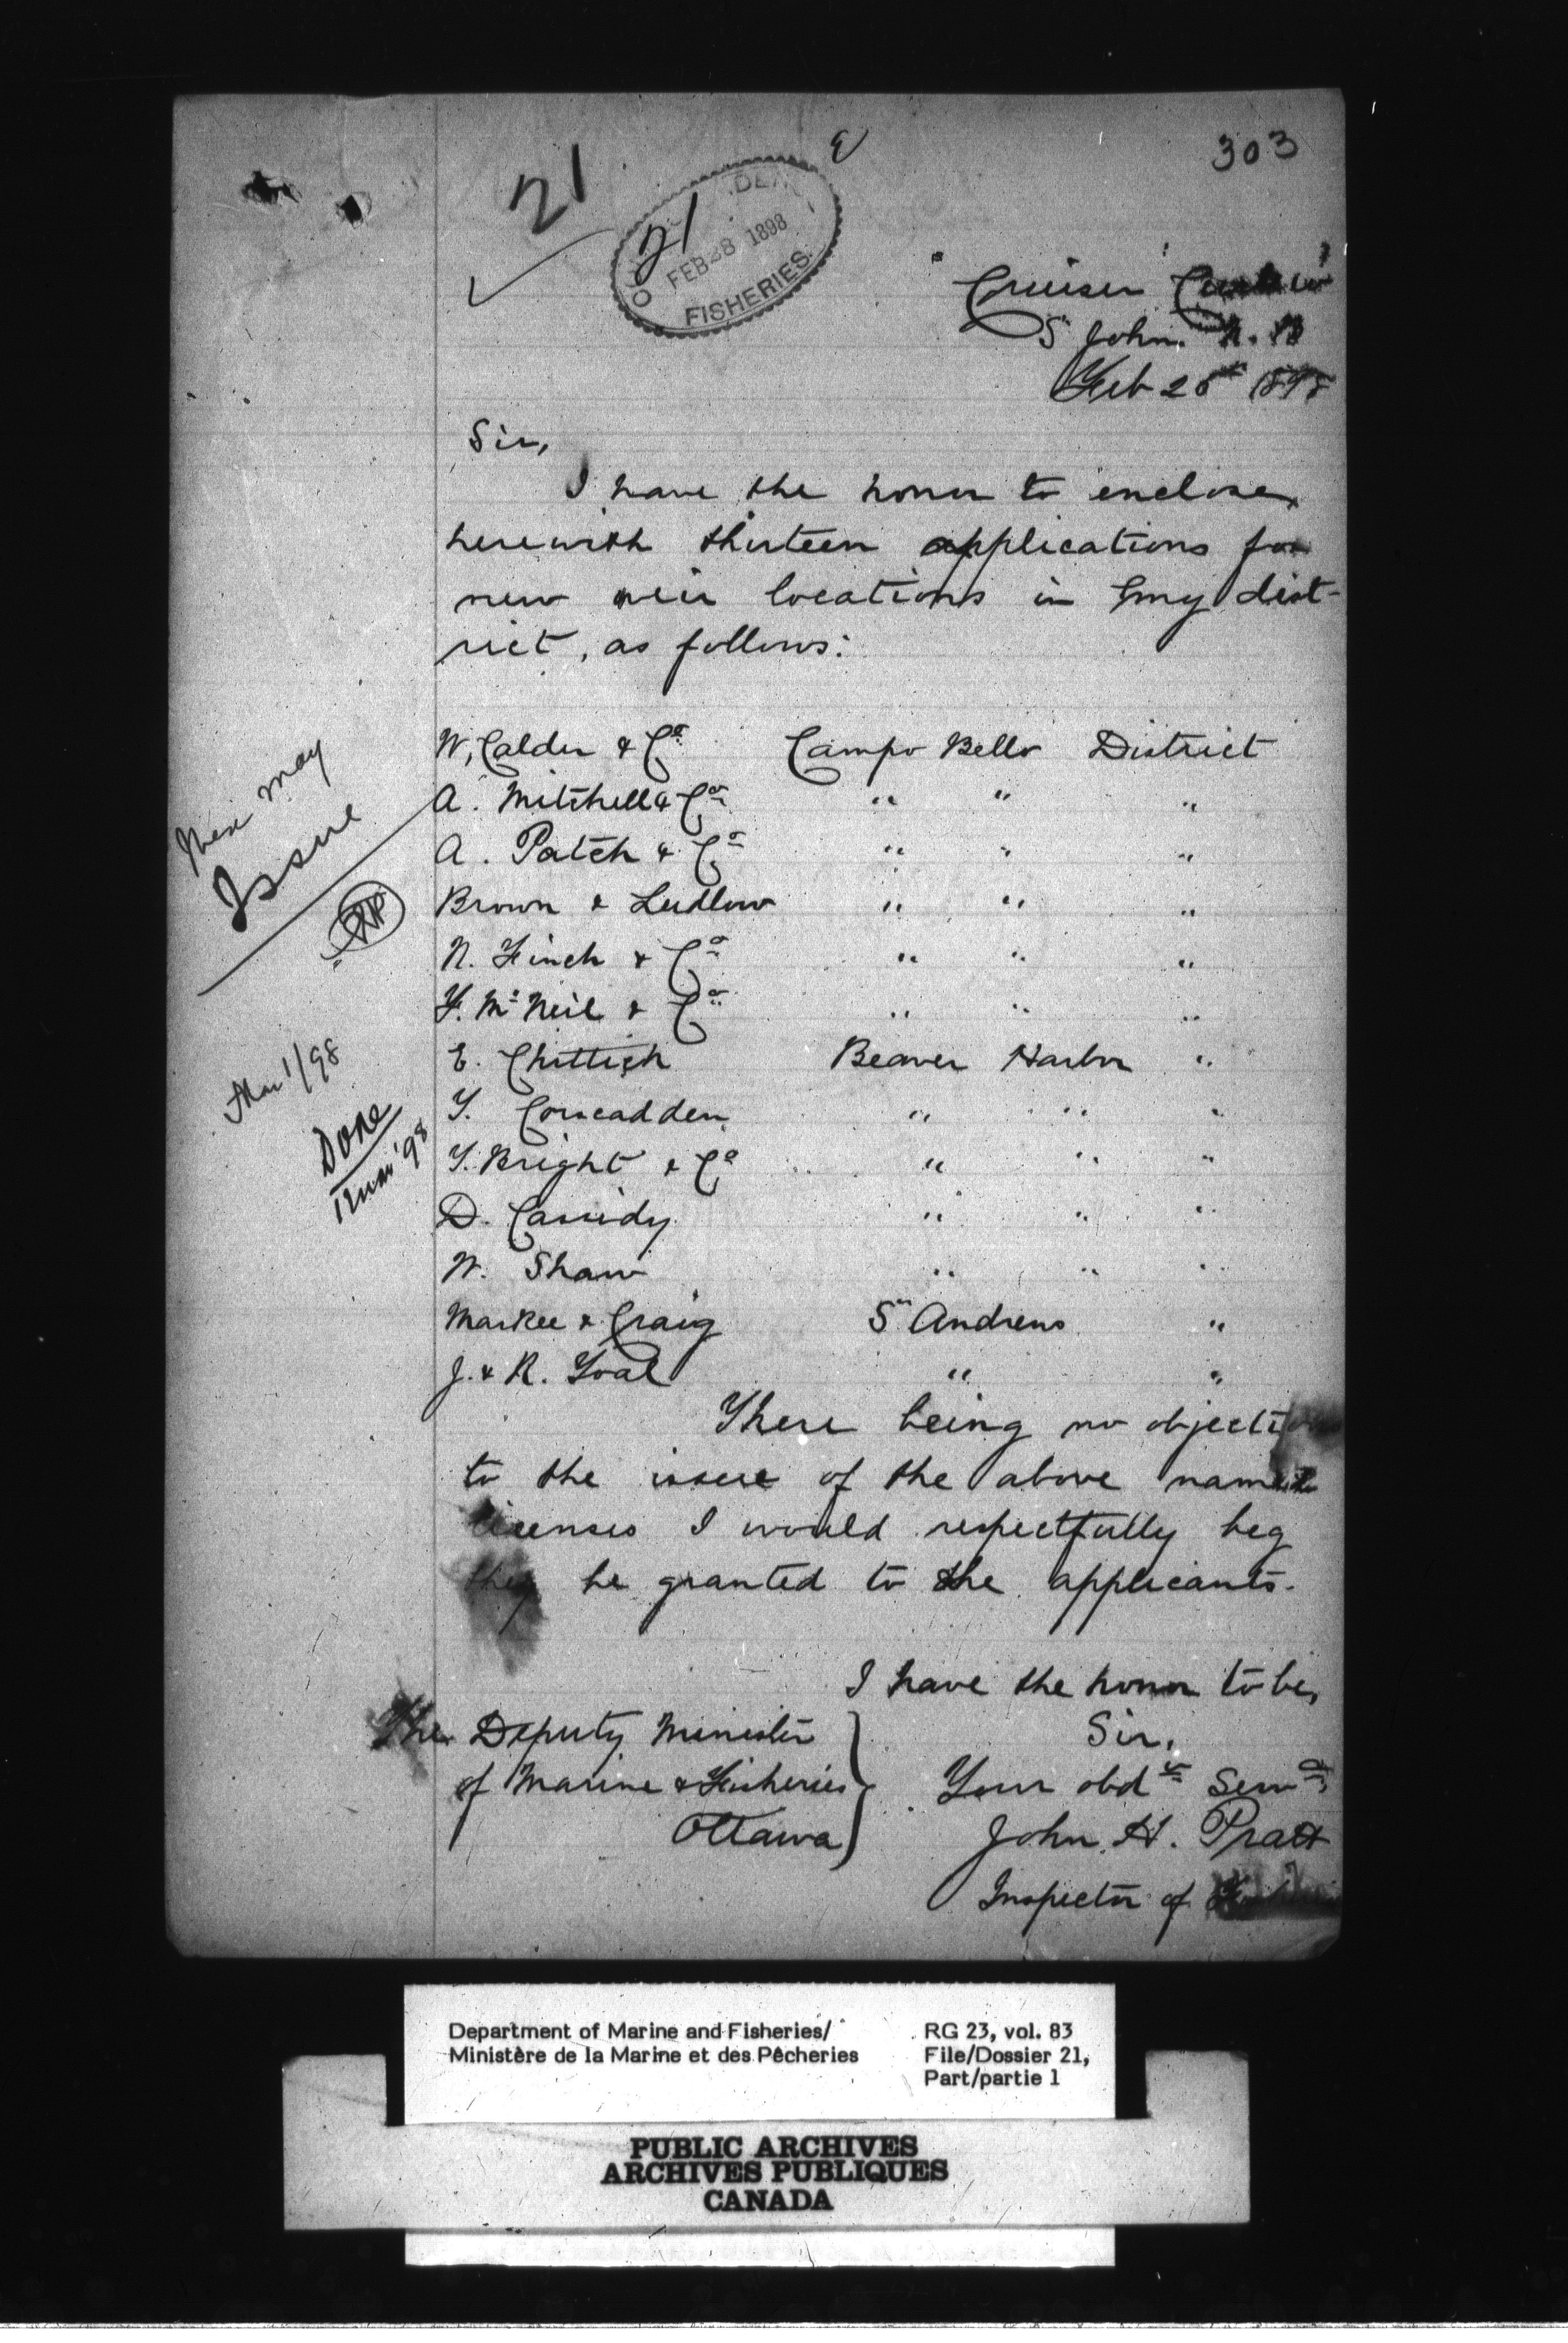 303
21
21
FEB 28 1898
FISHERIES
"Cruiser Curlew"
St John. N. B
Feb 25th 1898
Sir,
I have the honor to enclose
herewith thirteen applications for
new weir locations in my dist-
rict, as follows:
W. Calder & Co Campo Bello District
A. Mitchell & Co " " "
A. Patch & Co " " "
Brown & Ludlow " " "
N. Finch & Co " " "
F. McNeil & Co " " "
E. Chittick Beaver Harbor "
T. Corscadden " " "
T. Bright & Co " " "
D. Cassidy " " "
W. Shaw " " "
Markee & Craig St Andrews "
J. & R. Goal " "
These may
Issue
Mar 1/98
Done
1 Mar '98
There being no objection
to the issue of the above named
licenses I would respectfully beg
they be granted to the applicants.
I have the honor to be,
Sir,
Your obdt Servt
John H. Pratt
Inspector of Fisheries
The Deputy Minister
of Marine & Fisheries
Ottawa
Department of Marine and Fisheries/
Ministère de la Marine et des Pêcheries
RG 23, vol. 83
File/Dossier 21,
Part/partie 1
PUBLIC ARCHIVES
ARCHIVES PUBLIQUES
CANADA